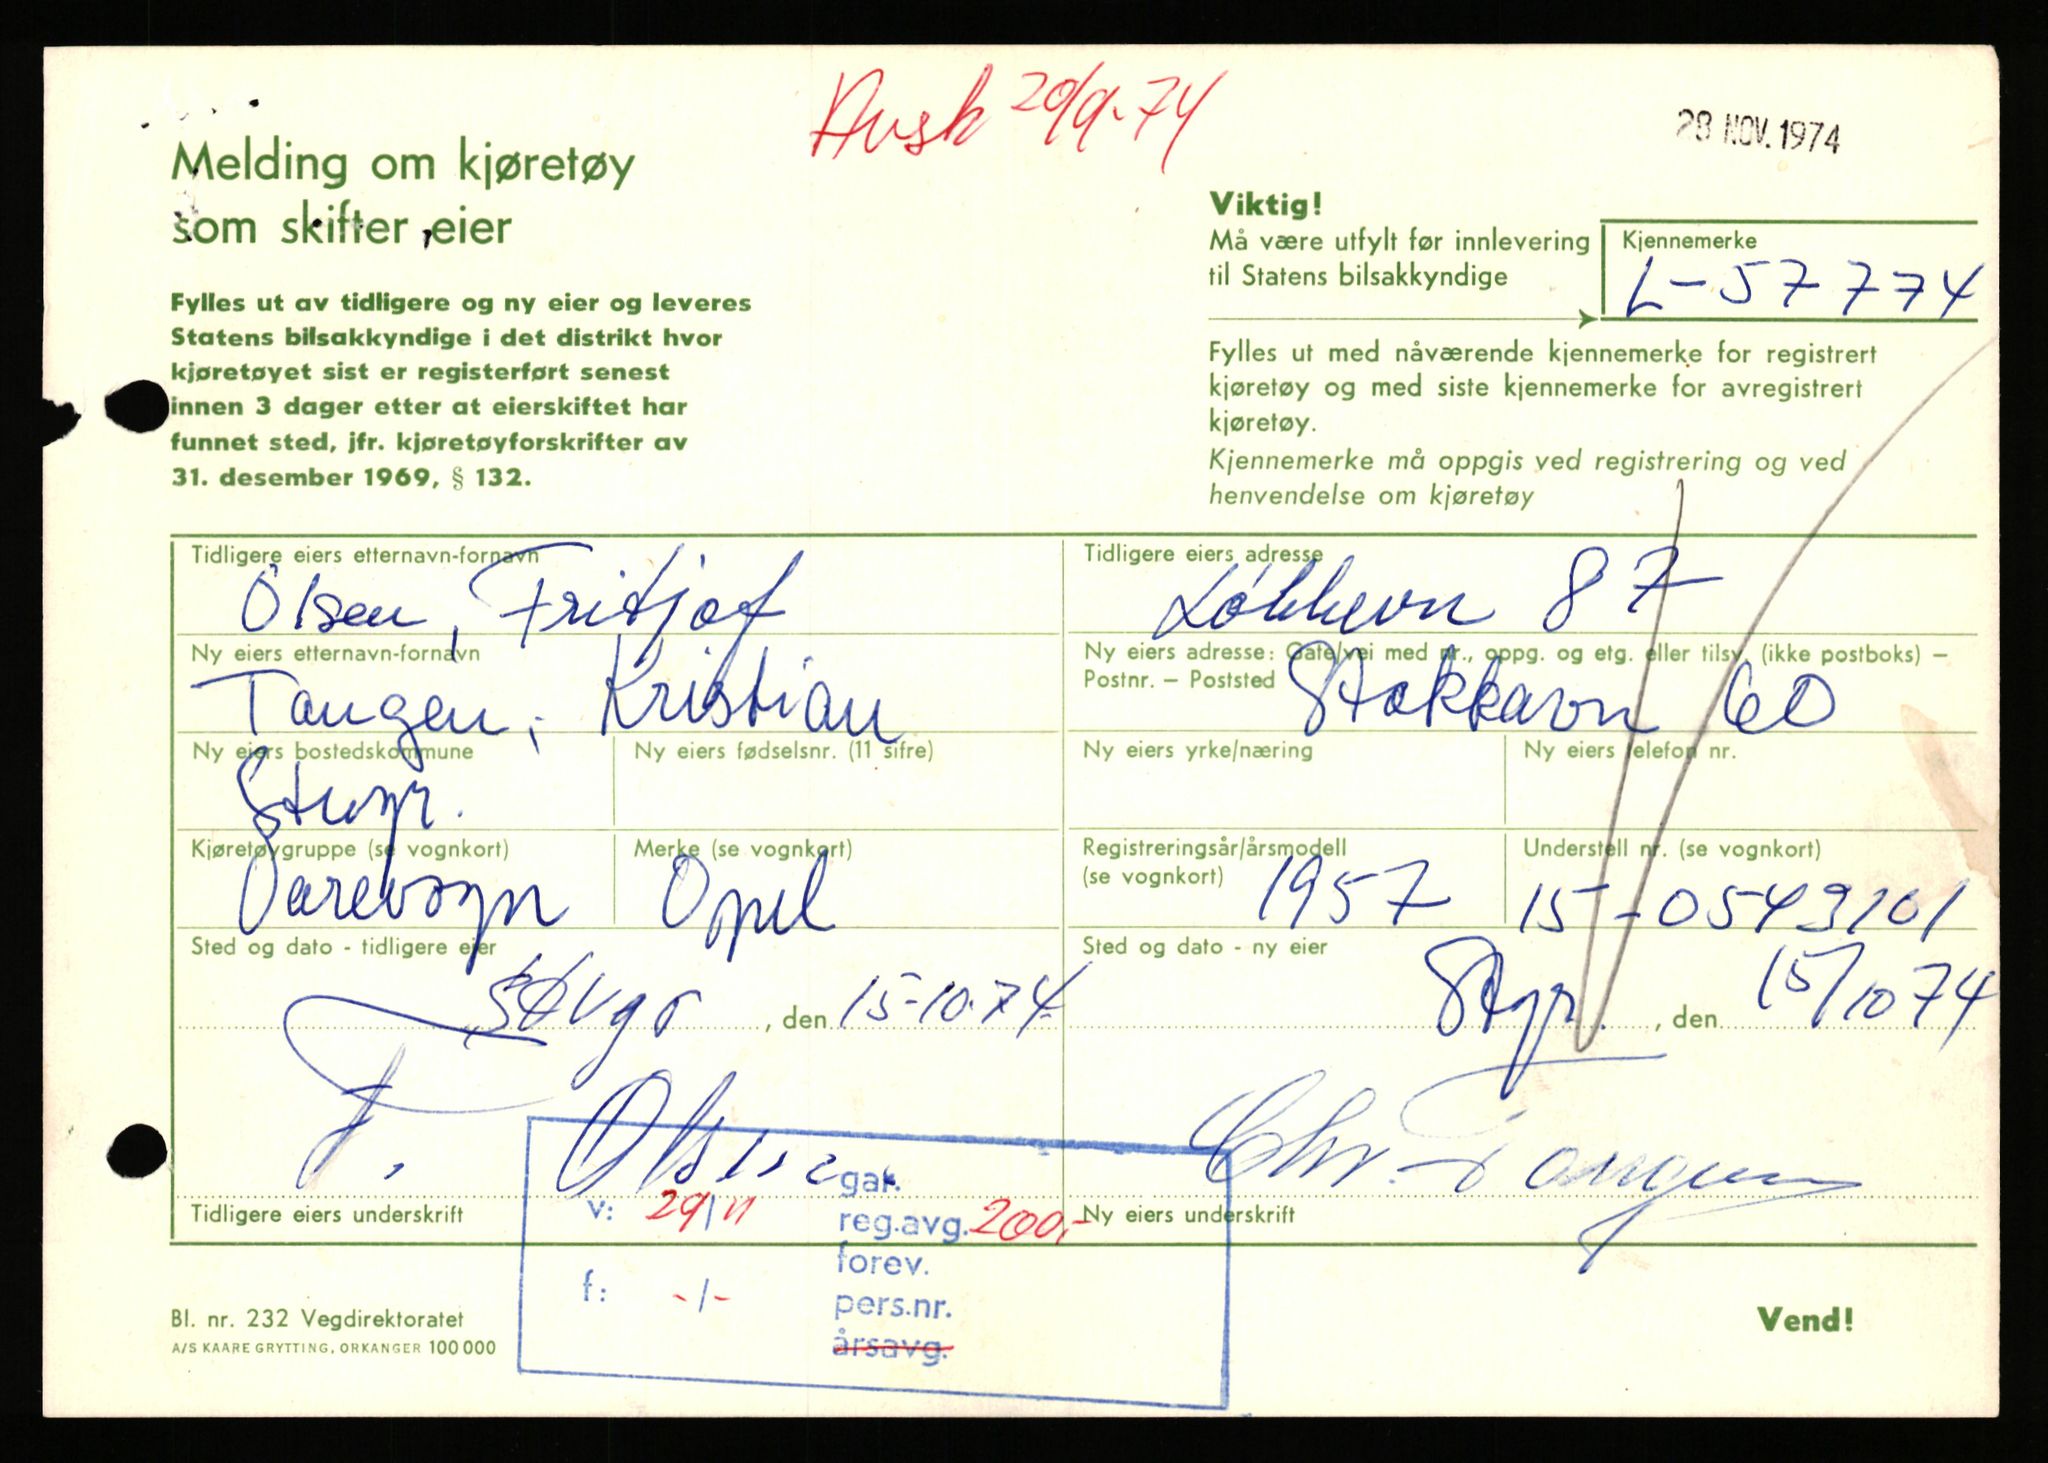 Avsk 20/9-74
28 NOV. 1974
Melding om kjøretøy
som skifter eier
Fylles ut av tidligere og ny eier og leveres
Statens bilsakkyndige i det distrikt hvor
kjøretøyet sist er registerført senest
innen 3 dager etter at eierskiftet har
funnet sted, jfr. kjøretøyforskrifter av
31. desember 1969, § 132.
Viktig!
Må være utfylt før innlevering
til Statens bilsakkyndige
Kjennemerke
L-57774
Fylles ut med nåværende kjennemerke for registrert
kjøretøy og med siste kjennemerke for avregistrert
kjøretøy.
Kjennemerke må oppgis ved registrering og ved
henvendelse om kjøretøy
Tidligere eiers etternavn-fornavn
Olsen, Fritjof
Tidligere eiers adresse
Løkkevn 87
Ny eiers etternavn-fornavn
Tangen, Kristian
Ny eiers adresse: Gate/vei med nr., oppg. og etg. eller tilsv. (ikke postboks) –
Postnr. – Poststed
Stokkavn 60
Ny eiers bostedskommune
Stvgr.
Ny eiers fødselsnr. (11 sifre)
Ny eiers yrke/næring
Ny eiers telefon nr.
Kjøretøygruppe (se vognkort)
Varevogn
Merke (se vognkort)
Opel
Registreringsår/årsmodell
(se vognkort)
1957
Understell nr. (se vognkort)
15-0543101
Sted og dato - tidligere eier
, den 15-10-74
Sted og dato - ny eier
, den 15/10 74
F. Olsen
Chr. Tangen
Tidligere eiers underskrift
Ny eiers underskrift
gar.
v: 29/11 reg.avg. 200,-
forev.
f: -/- pers.nr.
årsavg.
Bl. nr. 232 Vegdirektoratet
A/S KAARE GRYTTING, ORKANGER 100 000
Vend!